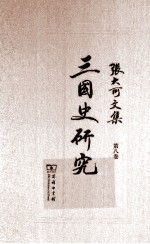 張大可文集
第八卷
三國史研究
商務印書館